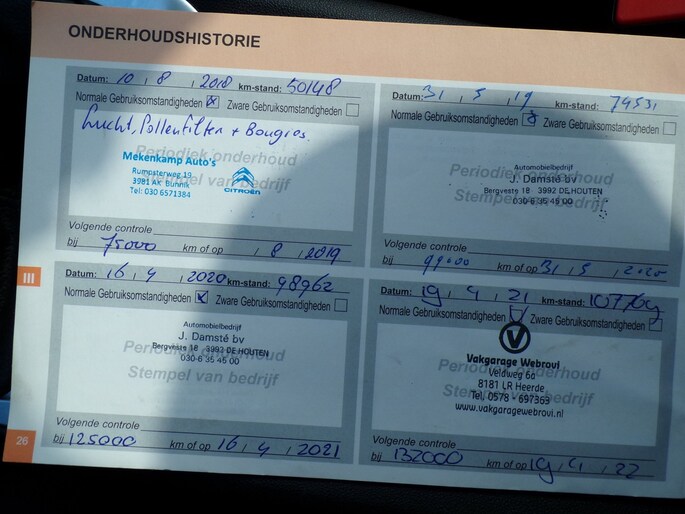 ONDERHOUDSHISTORIE
Datum: 10 / 8 / 2018 km-stand: 50148
Normale Gebruiksomstandigheden ☒ Zware Gebruiksomstandigheden ☐
Lucht, Pollenfilter + Bougies.
Periodiek onderhoud
Stempel van bedrijf
Mekenkamp Auto's
Rumpsterweg 19
3981 AK Bunnik
Tel: 030 6571384
CITROËN
Volgende controle
bij 75000 km of op / 8 / 2019
Datum: 31 / 5 / 19 km-stand: 74531
Normale Gebruiksomstandigheden ☒ Zware Gebruiksomstandigheden ☐
Periodiek onderhoud
Stempel van bedrijf
Automobielbedrijf
J. Damsté bv
Bergveste 18 3992 DE HOUTEN
030-6 35 45 00
Volgende controle
bij 99000 km of op 31 / 5 / 2020
III
Datum: 16 / 4 / 2020 km-stand: 98962
Normale Gebruiksomstandigheden ☒ Zware Gebruiksomstandigheden ☐
Periodiek onderhoud
Stempel van bedrijf
Automobielbedrijf
J. Damsté bv
Bergveste 18 3992 DE HOUTEN
030-6 35 45 00
Volgende controle
bij 125000 km of op 16 / 4 / 2021
Datum: 19 / 4 / 21 km-stand: 107769
Normale Gebruiksomstandigheden ☑ Zware Gebruiksomstandigheden ☐
Periodiek onderhoud
Stempel van bedrijf
Vakgarage Webrovi
Veldweg 6a
8181 LR Heerde
Tel. 0578 - 697363
www.vakgaragewebrovi.nl
Volgende controle
bij 132000 km of op 19 / 4 / 22
26